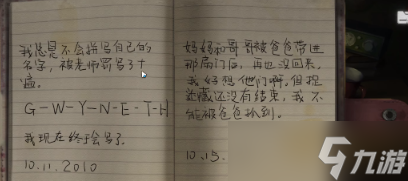 我总是不会拼写自己的
名字，被老师罚写了十
遍。
G-W-Y-N-E-T-H
我现在终于会写了
10.11.2010
妈妈和哥哥被爸爸带进
那扇门后，再也没回来，
我好想他们啊。但捉
迷藏还没有结束，我不
能被爸爸抓到。
10.13.
九游